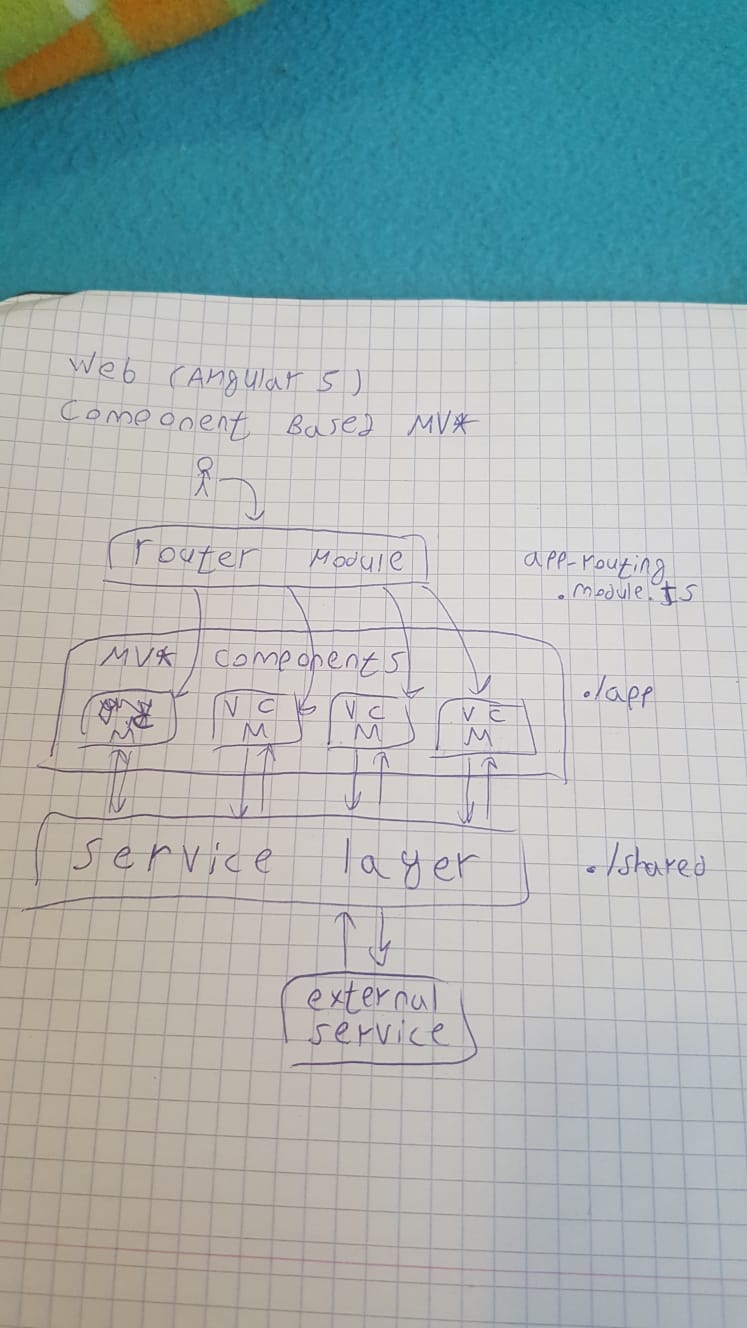 Web (Angular 5)
Component Based MV*
router Module
app-routing
.module.ts
MV* components
./app
M
V C
M
V C
M
V C
M
service layer
./shared
external
service